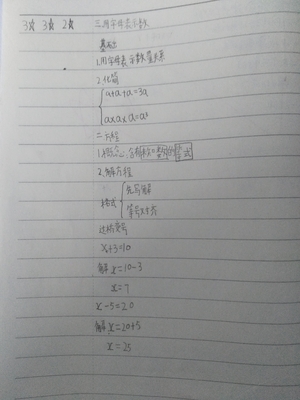 3☆ 3☆ 2☆ 三.用字母表示数
基础
1.用字母表示数量关系
2.化简
a+a+a=3a
a×a×a=a³
二.方程
1.概念:含有未知数的等式
2.解方程
格式
先写解
等号对齐
过桥变号
x+3=10
解x=10-3
x=7
x-5=20
解x=20+5
x=25